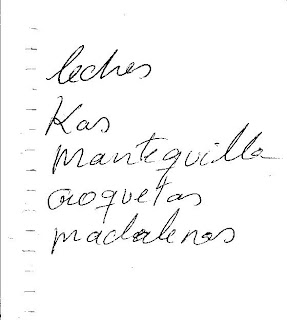 leches
Kas
mantequilla
croquetas
madalenas